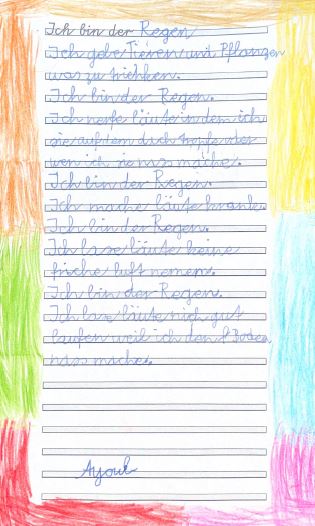 Ich bin der Regen
Ich gebe Tieren und Pflanzen
was zu trinken.
Ich bin der Regen.
Ich nerfe läute in dem ich
sie auf dem dach tropfe oder
wen ich sie nas mache.
Ich bin der Regen.
Ich mache läute krank.
Ich bin der Regen.
Ich lase läute keine
friche luft nemen.
Ich bin der Regen.
Ich lase läute nich gut
laufen weil ich den Boden
nass mache.
Ayoub